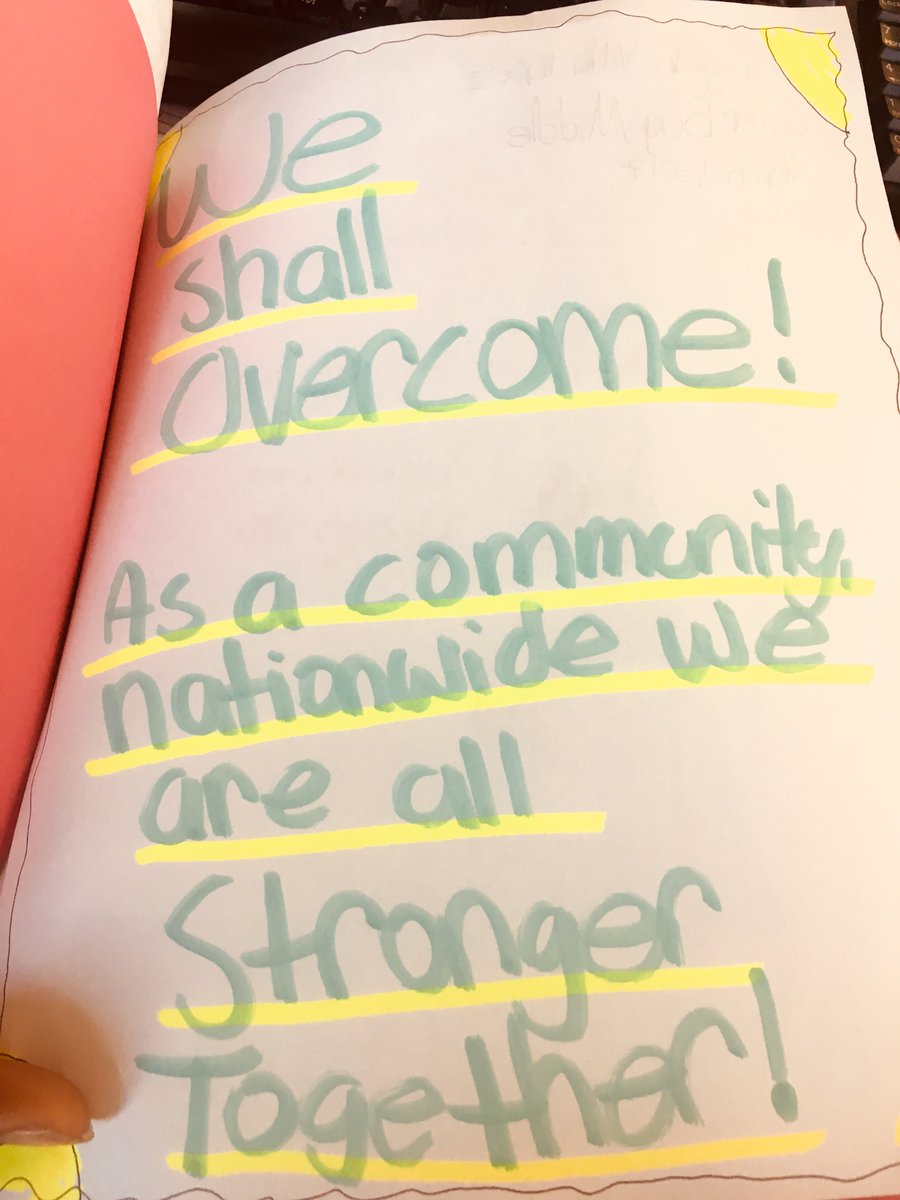 We
shall
Overcome!
As a community,
nationwide we
are all
Stronger
Together!